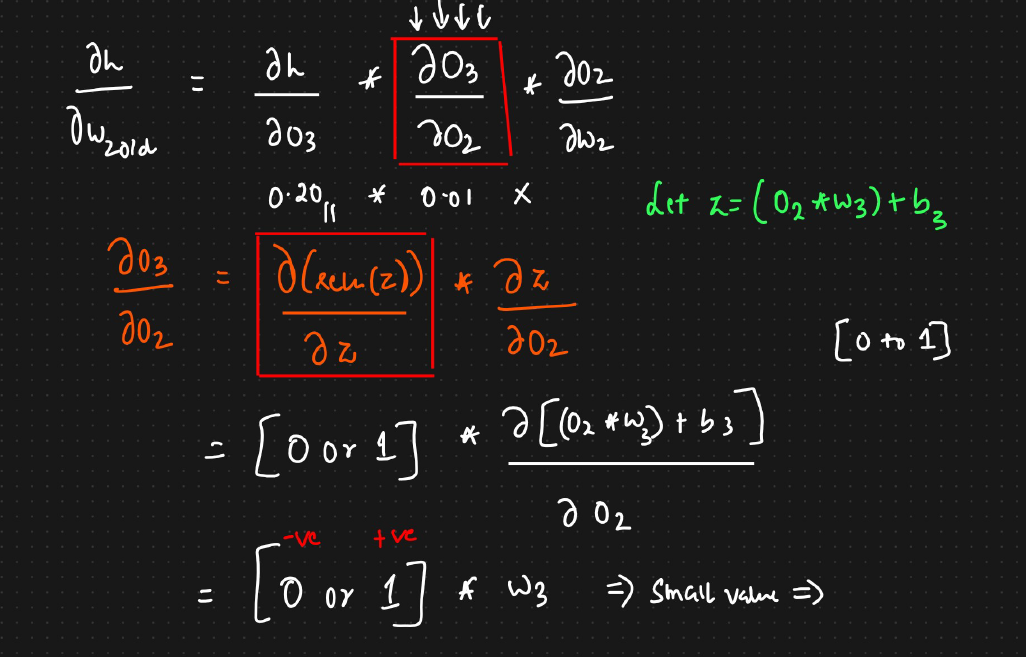 ∂h/∂w₂old = ∂h/∂O₃ * ∂O₃/∂O₂ * ∂O₂/∂w₂
0.20 * 0.01 x
Let z = (O₂ * w₃) + b₃
∂O₃/∂O₂ = ∂(relu(z))/∂z * ∂z/∂O₂
[0 to 1]
= [0 or 1] * ∂[(O₂ * w₃) + b₃]/∂O₂
-ve +ve
= [0 or 1] * w₃ ⇒ Small value ⇒